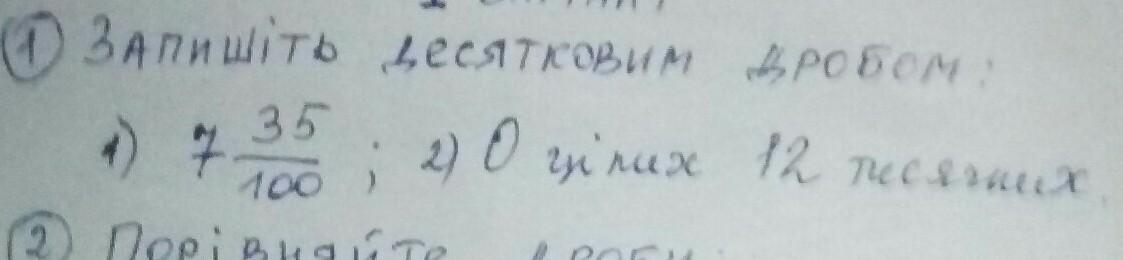 ① Запишіть десятковим дробом:
1) 7 35/100 ; 2) 0 цілих 12 тисячних.
② Порівняйте дроби: